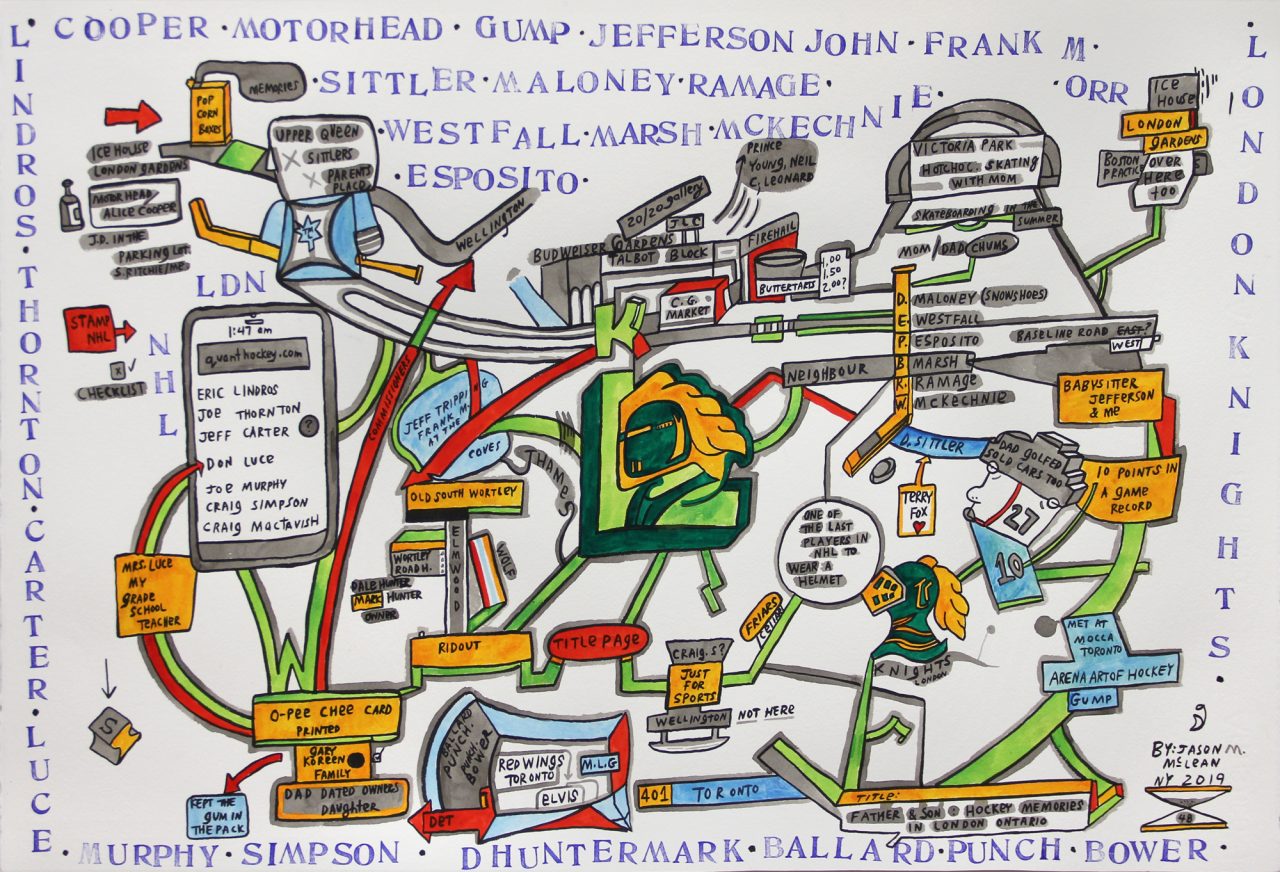 L. COOPER · MOTORHEAD · GUMP · JEFFERSON JOHN · FRANK M.
· SITTLER · MALONEY · RAMAGE ·
· WESTFALL · MARSH · MCKECHNIE ·
· ESPOSITO ·
ORR
LINDROS · THORNTON · CARTER · LUCE
· LONDON KNIGHTS ·
MEMORIES
POP
CORN
BOXES
ICE HOUSE
LONDON GARDENS
MOTORHEAD
ALICE COOPER
J.D. IN THE
PARKING LOT
S. RITCHIE/ME
UPPER QUEEN
X SITTLERS
X PARENTS
PLACE
WELLINGTON
PRINCE
YOUNG, NEIL
C, LEONARD
20/20 gallery
JLC
BUDWEISER GARDENS
TALBOT BLOCK
FIREHALL
C.G.
MARKET
BUTTERTARTS
1,00
1,50
2,00?
VICTORIA PARK
HOTCHOC. SKATING
WITH MOM
SKATEBOARDING IN THE
SUMMER
MOM/DAD CHUMS
ICE
HOUSE
LONDON
GARDENS
BOSTON
PRACTICE
OVER
HERE
TOO
LDN
NHL
STAMP
NHL
X ✓
CHECKLIST
1:47 am
quanthockey.com
ERIC LINDROS
JOE THORNTON
JEFF CARTER ?
DON LUCE
JOE MURPHY
CRAIG SIMPSON
CRAIG MACTAVISH
COMMISSIONERS
JEFF TRIPPING
FRANK M.
AT THE
COVES
THAMES
K
D. MALONEY (SNOWSHOES)
E. WESTFALL
P. ESPOSITO
B. MARSH
R. RAMAGE
W. MCKECHNIE
BASELINE ROAD EAST?
WEST
NEIGHBOUR
BABYSITTER
JEFFERSON
& ME
D. SITTLER
DAD GOLFED
SOLD CARS TOO
27
10
10 POINTS IN
A GAME
RECORD
TERRY
FOX
OLD SOUTH WORTLEY
ELMWOOD
WORTLEY
ROAD H.
WOLF
DALE HUNTER
MARK HUNTER
OWNER
ONE OF
THE LAST
PLAYERS IN
NHL TO
WEAR A
HELMET
MRS. LUCE
MY
GRADE
SCHOOL
TEACHER
RIDOUT
TITLE PAGE
FRIARS
CELLAR
CRAIG. S?
JUST
FOR
SPORTS
WELLINGTON NOT HERE
KNIGHTS
LONDON
MET AT
MOCCA
TORONTO
ARENA ART OF HOCKEY
GUMP
O-PEE CHEE CARD
PRINTED
GARY
KOREEN
FAMILY
DAD DATED OWNERS
DAUGHTER
KEPT THE
GUM IN
THE PACK
S
BALLARD
PUNCH
PUNCH
BOWER
RED WINGS
TORONTO
ELVIS
M.L.G
DET
401 TORONTO
TITLE:
FATHER & SON: HOCKEY MEMORIES
IN LONDON ONTARIO
BY: JASON M.
MCLEAN
NY 2019
48
· MURPHY · SIMPSON · DHUNTERMARK · BALLARD · PUNCH · BOWER ·